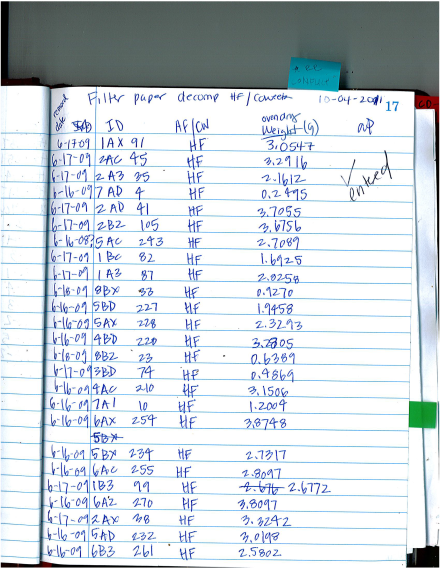 Filter paper decomp HF/Coweeta 10-04-2011 17
removal date ID AF/CW ovendry Weight (g)
6-17-09 1AX 91 HF 3.0547
6-17-09 2AC 45 HF 3.2916
6-17-09 2A3 35 HF 2.1612
6-16-09 7AD 4 HF 0.2495
6-17-09 2AD 41 HF 3.7055
6-17-09 2B2 105 HF 3.6756
6-16-08? 5AC 243 HF 2.7089
6-17-09 1BC 82 HF 1.6925
6-17-09 1A3 87 HF 2.0258
6-18-09 8BX 33 HF 0.9270
6-16-09 5BD 227 HF 1.9458
6-16-09 5AX 228 HF 2.3293
6-16-09 4BD 220 HF 3.2805
6-18-09 8B2 23 HF 0.6389
6-17-09 3BD 74 HF 0.4869
6-16-09 4AC 210 HF 3.1506
6-16-09 7A1 10 HF 1.2004
6-16-09 6AX 254 HF 3.8748
5BX
6-16-09 5BX 234 HF 2.7317
6-16-09 6AC 255 HF 2.8097
6-17-09 1B3 99 HF 2.676 2.6772
6-16-09 6A2 270 HF 3.8097
6-17-09 2AX 38 HF 3.3242
6-16-09 5AD 232 HF 3.0198
6-16-09 6B3 261 HF 2.5802
entered